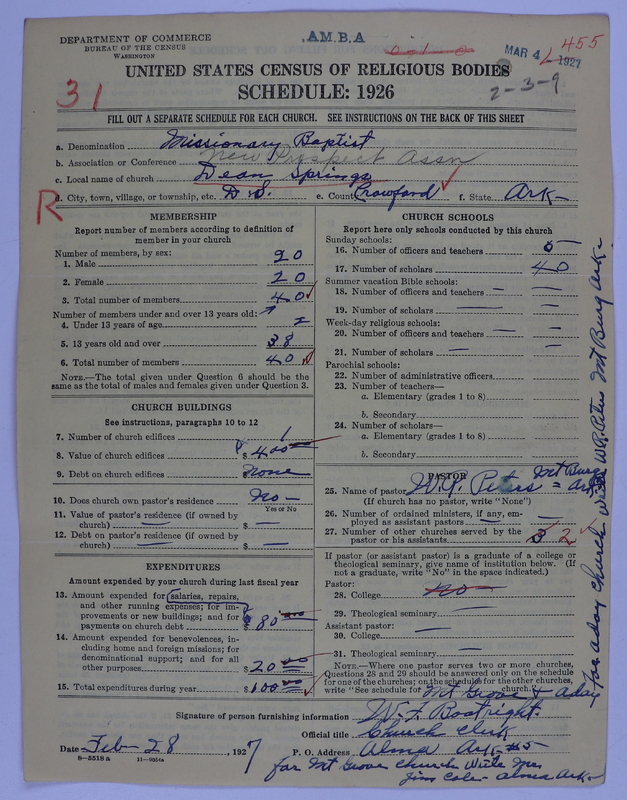 DEPARTMENT OF COMMERCE
BUREAU OF THE CENSUS
WASHINGTON
A.M.B.A
MAR 4 1927
455
2-3-9
31
UNITED STATES CENSUS OF RELIGIOUS BODIES
SCHEDULE: 1926
FILL OUT A SEPARATE SCHEDULE FOR EACH CHURCH. SEE INSTRUCTIONS ON THE BACK OF THIS SHEET
a. Denomination Missionary Baptist
b. Association or Conference New Prospect Assn
c. Local name of church Dean Springs
R
d. City, town, village, or township, etc. D. S. e. County Crawford f. State Ark-
MEMBERSHIP
Report number of members according to definition of
member in your church
Number of members, by sex:
1. Male 20
2. Female 20
3. Total number of members 40
Number of members under and over 13 years old:
4. Under 13 years of age 2
5. 13 years old and over 38
6. Total number of members 40
NOTE.—The total given under Question 6 should be the
same as the total of males and females given under Question 3.
CHURCH BUILDINGS
See instructions, paragraphs 10 to 12
7. Number of church edifices 1
8. Value of church edifices $ 400
9. Debt on church edifices $ none
10. Does church own pastor's residence no—
Yes or No
11. Value of pastor's residence (if owned by
church) — $ —
12. Debt on pastor's residence (if owned by
church) — $ —
EXPENDITURES
Amount expended by your church during last fiscal year
13. Amount expended for salaries, repairs,
and other running expenses; for im-
provements or new buildings; and for
payments on church debt $ 80
14. Amount expended for benevolences, in-
cluding home and foreign missions; for
denominational support; and for all
other purposes $ 20 00
15. Total expenditures during year $ 100 00
CHURCH SCHOOLS
Report here only schools conducted by this church
Sunday schools:
16. Number of officers and teachers 5
17. Number of scholars 40
Summer vacation Bible schools:
18. Number of officers and teachers —
19. Number of scholars —
Week-day religious schools:
20. Number of officers and teachers —
21. Number of scholars —
Parochial schools:
22. Number of administrative officers
23. Number of teachers—
a. Elementary (grades 1 to 8)
b. Secondary
24. Number of scholars—
a. Elementary (grades 1 to 8)
b. Secondary
PASTOR
25. Name of pastor W. R. Peters = Mt Burg Ark
(If church has no pastor, write "None")
26. Number of ordained ministers, if any, em-
ployed as assistant pastors —
27. Number of other churches served by the
pastor or his assistants 3 2
If pastor (or assistant pastor) is a graduate of a college or
theological seminary, give name of institution below. (If
not a graduate, write "No" in the space indicated.)
Pastor:
28. College no
29. Theological seminary —
Assistant pastor:
30. College —
31. Theological seminary —
NOTE.—Where one pastor serves two or more churches,
Questions 28 and 29 should be answered only on the schedule
for one of the churches; on the schedules for the other churches,
write "See schedule for Mt Grove & aday church."
Signature of person furnishing information W. F. Boatright
Official title Church Clerk
Date Feb 28 1927 P. O. Address Alma Ark #5
8-5518a 11-9264a
for Mt Grove church Write Mr
Jim Cole- Alma Ark-
For aday church Write W.R. Peters Mt Burg Ark-